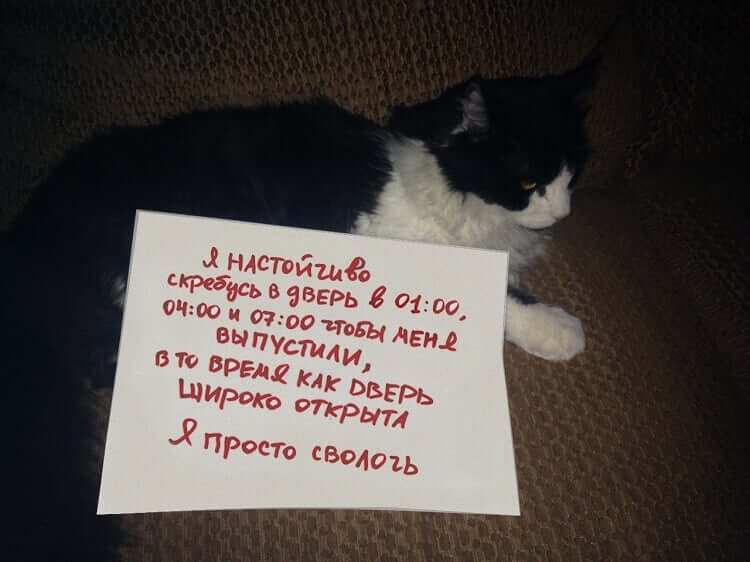 Я НАСТОЙЧИВО
скребусь в ДВЕРЬ в 01:00,
04:00 и 07:00 чтобы МЕНЯ
ВЫПУСТИЛИ,
В ТО ВРЕМЯ КАК ДВЕРЬ
ШИРОКО ОТКРЫТА
Я ПРОСТО СВОЛОЧЬ